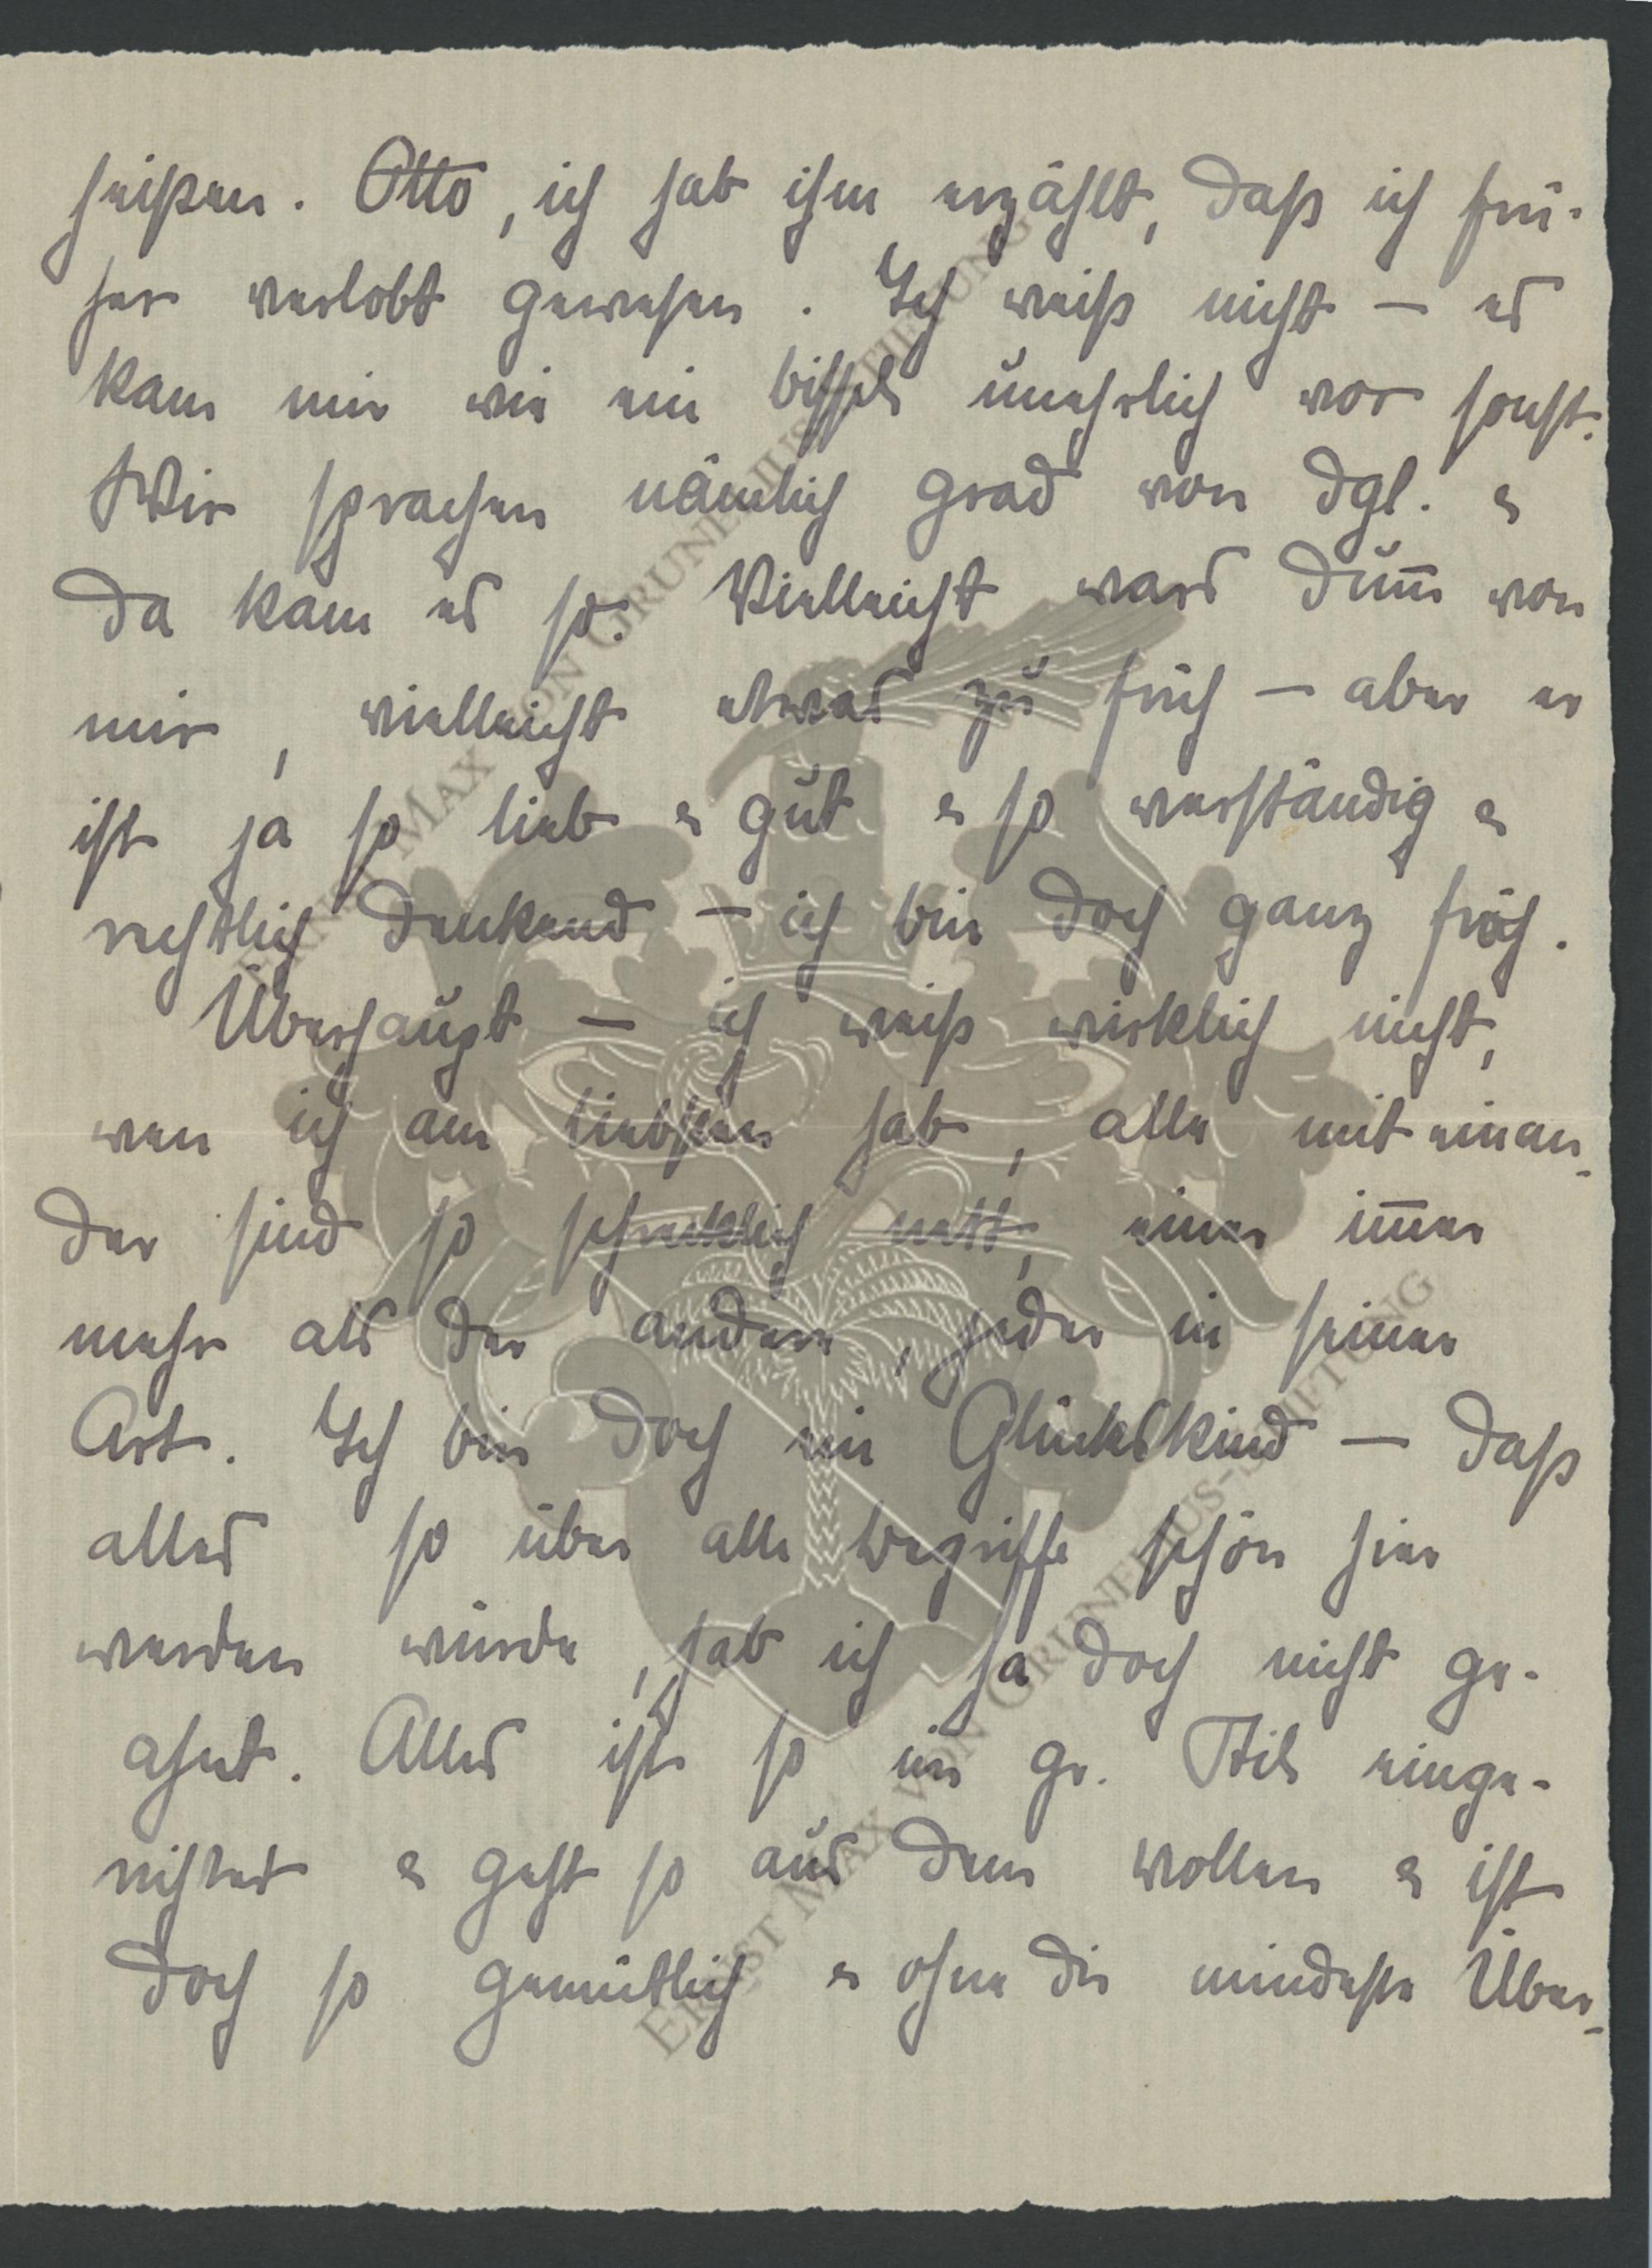 heißen. Otto, ich hab ihm erzählt, daß ich frü-
her verlobt gewesen. Ich weiß nicht – es
kam mir wie ein bissel unehrlich vor sonst.
Wir sprachen nämlich grad von dgl. &
da kam es so. Vielleicht wars dum̅ von
mir, vielleicht etwas zu früh – aber er
ist ja so lieb & gut & so verständig &
rechtlich denkend – ich bin doch ganz froh.
Überhaupt – ich weiß wirklich nicht,
wen ich am liebsten hab, alle mit einan-
der sind so schrecklich nett, einer im̅er
mehr als der andere, jeder in seiner
Art. Ich bin doch ein Glückskind – daß
alles so über alle Begriffe schön hier
werden würde, hab ich ja doch nicht ge-
ahnt. Alles ist so im gr. Stil einge-
richtet & geht so aus dem vollen & ist
doch so gemütlich & ohne die mindeste Über-
ERNST MAX VON GRUNELIUS-STIFTUNG
ERNST MAX VON GRUNELIUS-STIFTUNG